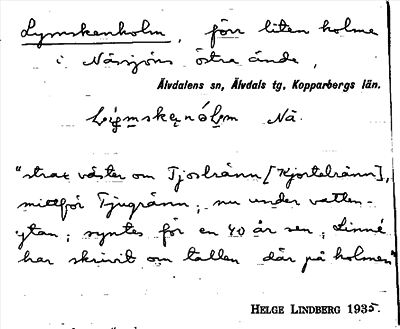 Lymskenholm, förr liten holme
i Näsjöns östra ände,
Älvdalens sn, Älvdals tg, Kopparbergs län.
Nä.
"strax väster om Tjoslränn [Kjortelränn],
mittför Tjugränn; nu under vatten-
ytan; syntes för en 40 år sen; Linné
har skrivit om tallen där på holmen"
HELGE LINDBERG 1935.